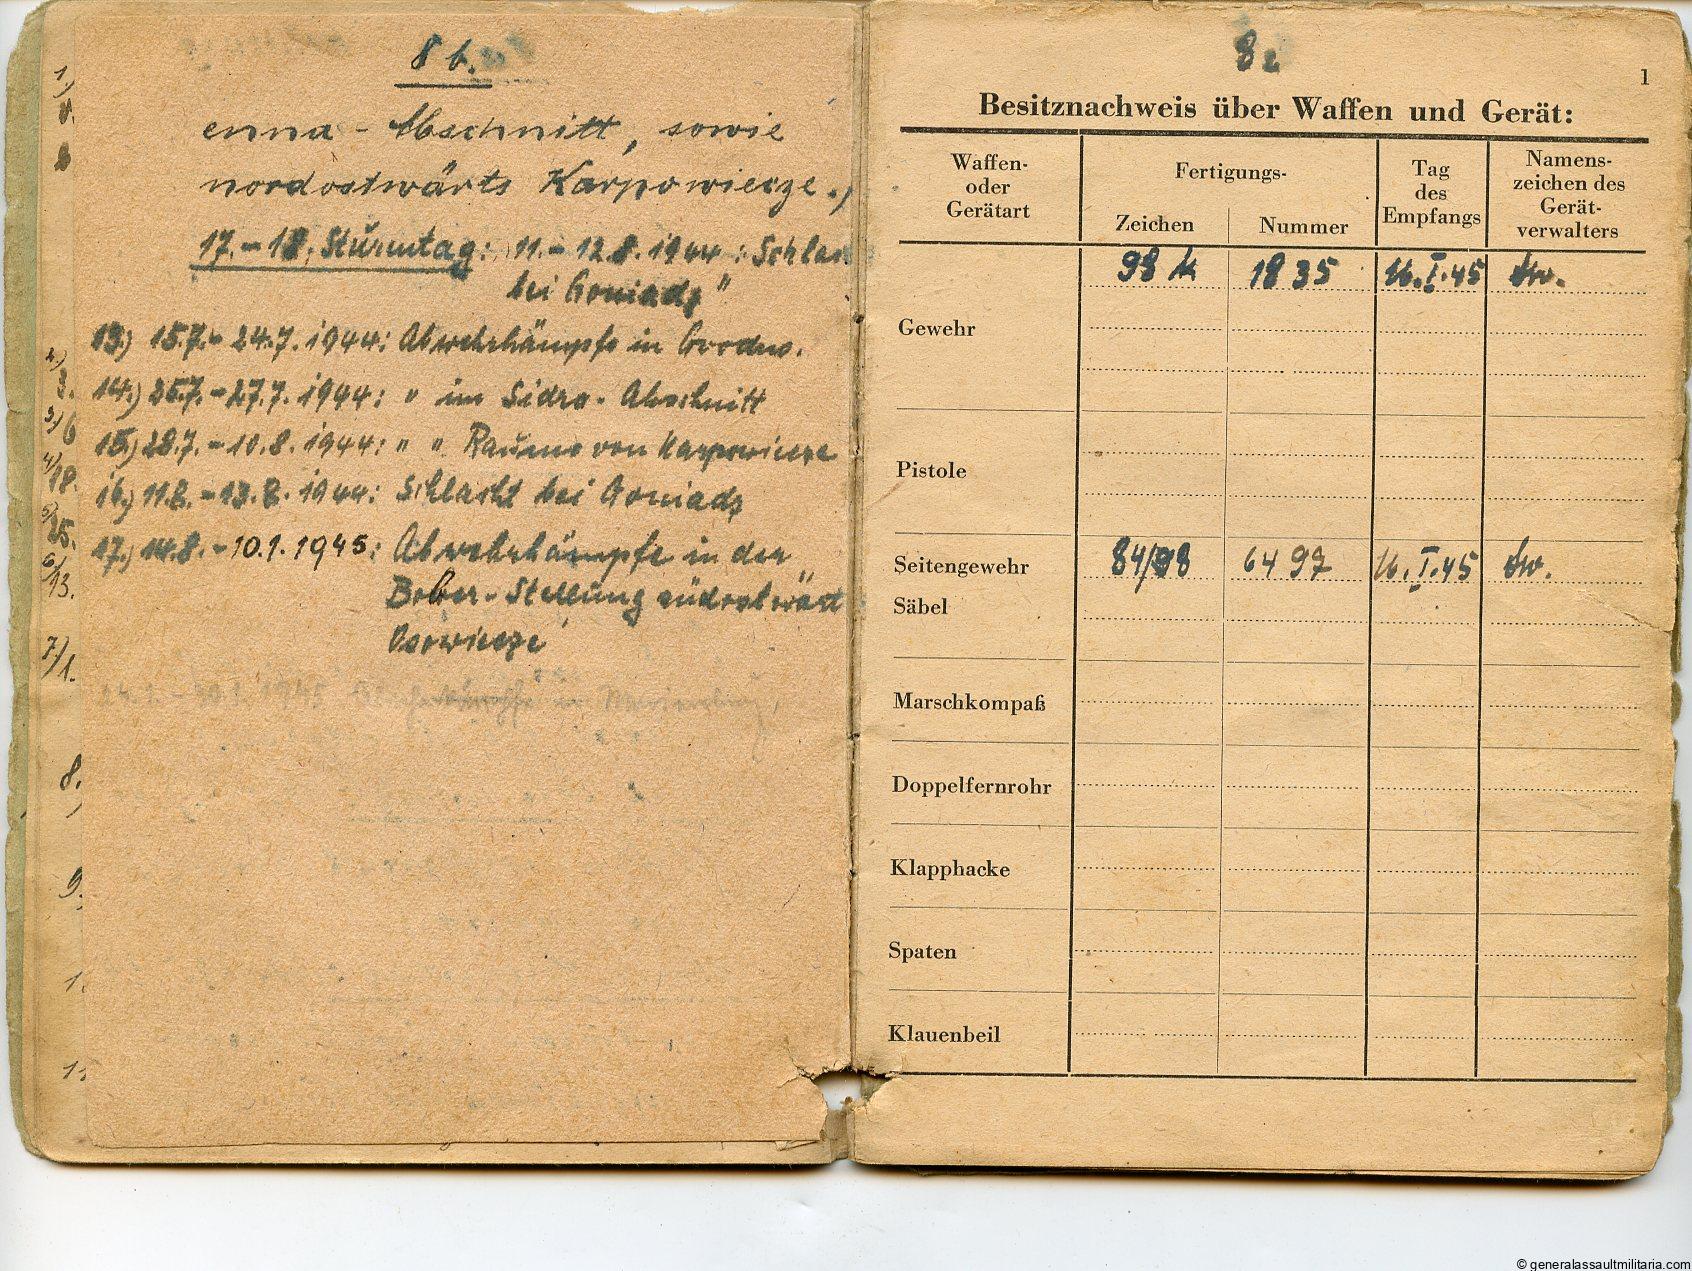 8 b.
enna - Abschnitt, sowie
nordostwärts Karpowicze.)
17. - 18. Sturmtag: 11. - 12.8.1944: Schla
bei Goniadz"
13.) 15.7. - 24.7.1944: Abwehrkämpfe in Grodno.
14.) 25.7. - 27.7.1944: " im Sidra - Abschnitt
15.) 28.7. - 10.8.1944: " " Raume von Karpowicze
16.) 11.8. - 13.8.1944: Schlacht bei Goniadz
17.) 14.8. - 10.1.1945: Abwehrkämpfe in der
Bober - Stellung südostwärt
Osowicze
24.1. - 30.1.1945 Abwehrkämpfe in Marienburg,
1.)
2.)
3.
3/6
4/18.
5/25.
6/13.
7/1.
8.
9.
1.
8c
1
Besitznachweis über Waffen und Gerät:
Waffen-
oder
Gerätart
Fertigungs-
Zeichen
Nummer
Tag
des
Empfangs
Namens-
zeichen des
Gerät-
verwalters
Gewehr
98 k
1835
16.I.45
Pistole
Seitengewehr
84/98
6497
16.I.45
Säbel
Marschkompaß
Doppelfernrohr
Klapphacke
Spaten
Klauenbeil
© generalassaultmilitaria.com